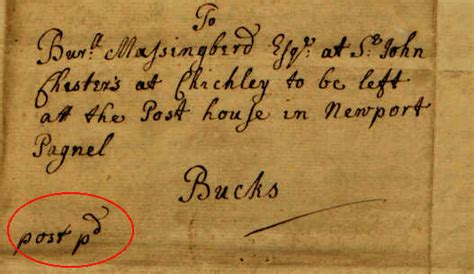 To
Burll Massingberd Esqr. at Sr. John
Chesters at Chichley to be left
att the Post house in Newport
Pagnel
Bucks
post pd